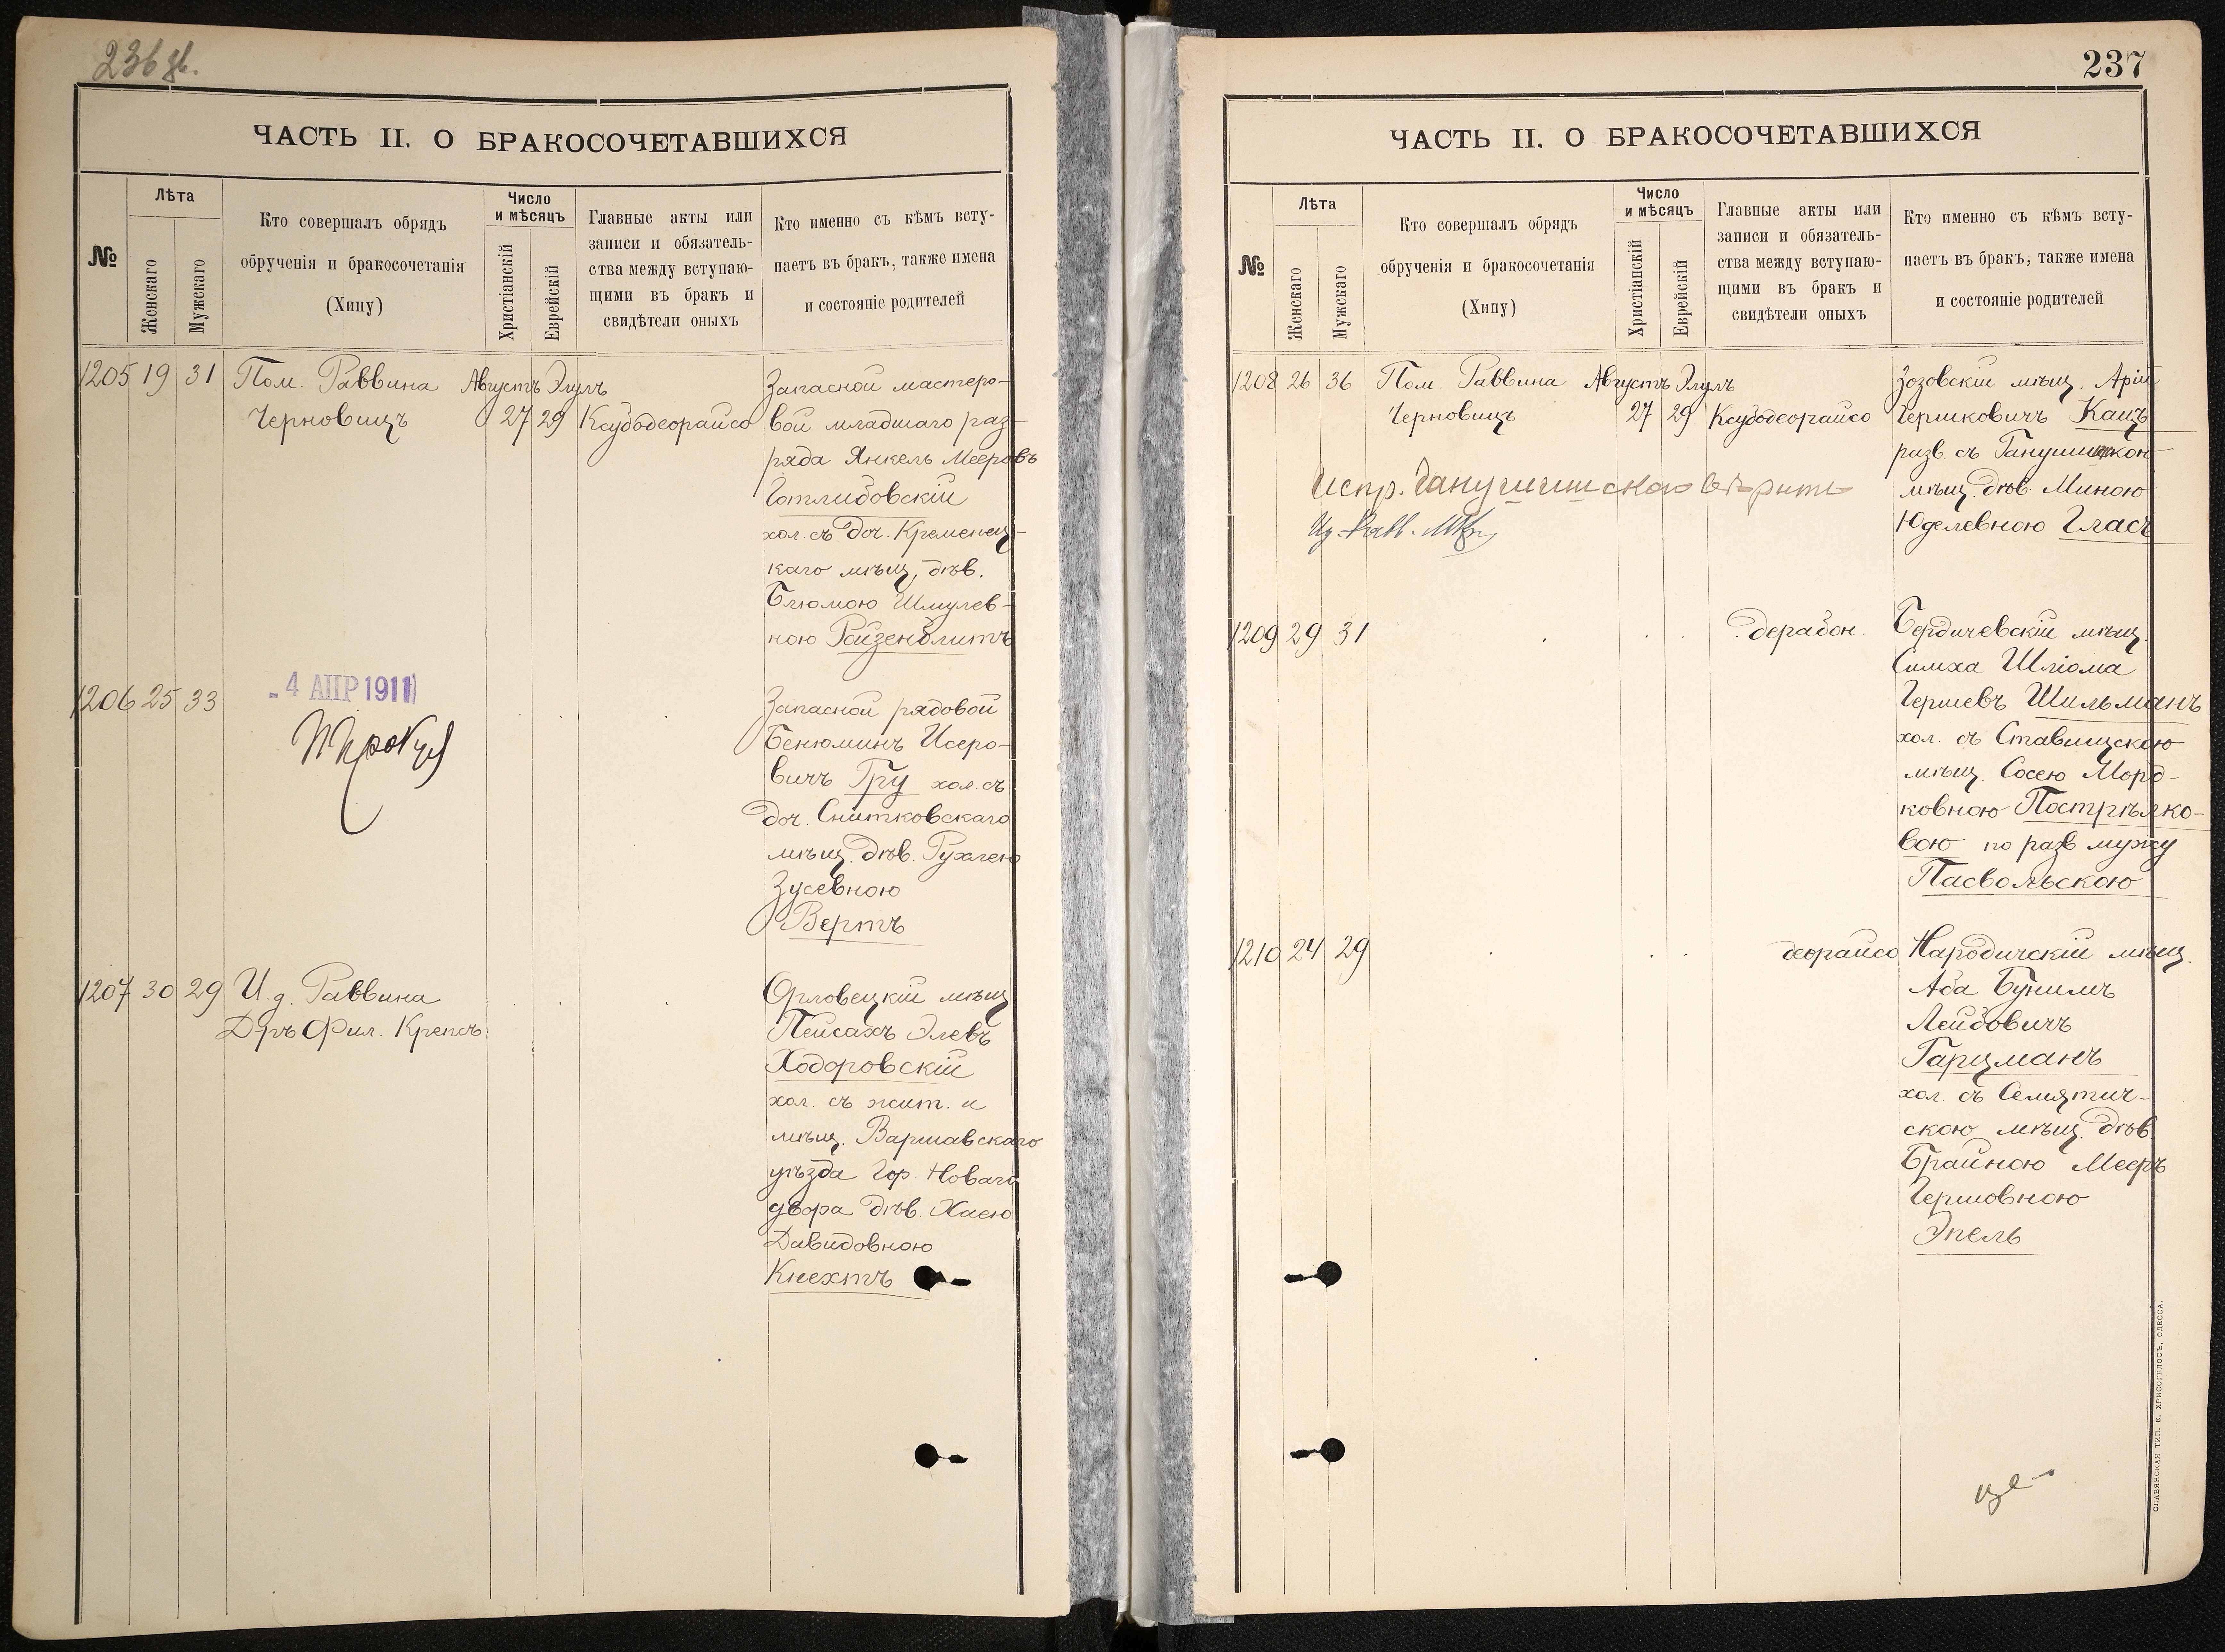 236 зв.
ЧАСТЬ II. О БРАКОСОЧЕТАВШИХСЯ
№
Лѣта
Женскаго
Мужскаго
Кто совершалъ обрядъ
обрученія и бракосочетанія
(Хипу)
Число
и мѣсяцъ
Христіанскій
Еврейскій
Главные акты или
записи и обязатель-
ства между вступаю-
щими въ бракъ и
свидѣтели оныхъ
Кто именно съ кѣмъ всту-
паетъ въ бракъ, также имена
и состояніе родителей
1205 19 31 Пом. Раввина Августъ Элулъ
Черновицъ 27 29 Ксубодеорайсо
Запасной мастеро-
вой младшаго раз-
ряда Янкель Мееровъ
Готлибовскій
хол. съ доч. Кременец-
каго мѣщ, дѣв.
Блюмою Шмулев-
ною Райзенблитъ
1206 25 33
- 4 АПР 1911
Запасной рядовой
Бенюминъ Исеро-
вичъ Гру хол. съ
доч. Снитковскаго
мѣщ. дѣв. Рухлею
Зусевною
Вертъ
1207 30 29 И. д. Раввина
Д-ръ Фил. Крепсъ
Орловецкій мѣщ
Пейсахъ Элевъ
Ходоровскій
хол. съ жит. и
мѣщ. Варшавскаго
уѣзда Гор. Новаго
двора дѣв. Хаею
Давидовною
Кнехтъ
237
ЧАСТЬ II. О БРАКОСОЧЕТАВШИХСЯ
№
Лѣта
Женскаго
Мужскаго
Кто совершалъ обрядъ
обрученія и бракосочетанія
(Хипу)
Число
и мѣсяцъ
Христіанскій
Еврейскій
Главные акты или
записи и обязатель-
ства между вступаю-
щими въ бракъ и
свидѣтели оныхъ
Кто именно съ кѣмъ всту-
паетъ въ бракъ, также имена
и состояніе родителей
1208 26 36 Пом. Раввина Августъ Элулъ
Черновицъ 27 29 Ксубодеорайсо
Зозовскій мѣщ. Арій
Гершковичъ Кацъ
разв. съ
мѣщ. дѣв. Миною
Юделевною Гласъ
Испр. вѣрить
1209 29 31 дерабон.
Бердичевскій мѣщ.
Симха Шліома
Гершевъ Шильманъ
хол. съ Ставищскою
мѣщ. Сосею Морд-
ковною Пострѣлко-
вою по разв мужу
Пасвольскою
1210 24 29 деорайсо
Народичскій мѣщ.
Аба Бунимъ
Лейбовичъ
Гарцманъ
хол. съ Семятич-
скою мѣщ. дѣв
Брайною Мееръ
Гершовною
Эпель
СЛАВЯНСКАЯ ТИП. Е. ХРИСОГЕЛОСЪ, ОДЕССА.